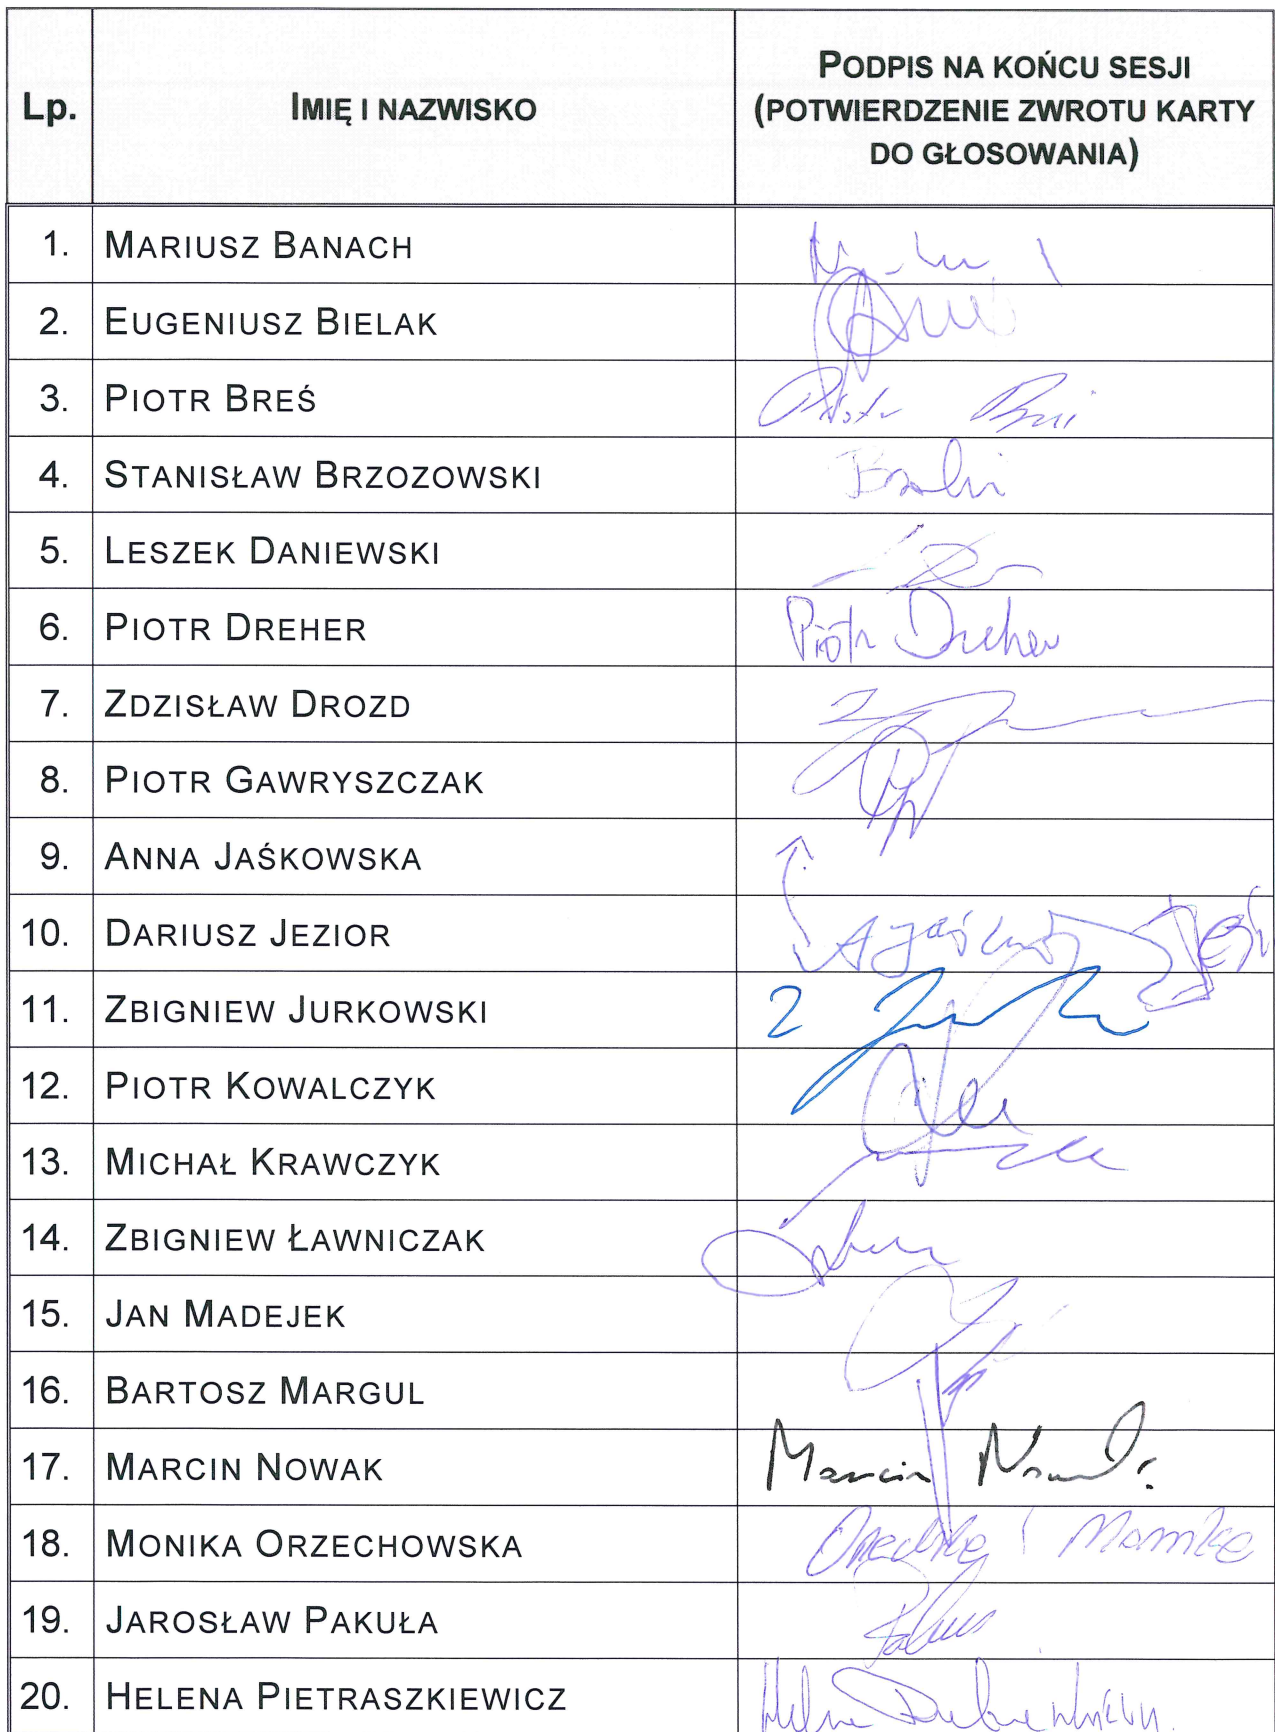 Lp.
IMIĘ I NAZWISKO
PODPIS NA KOŃCU SESJI
(POTWIERDZENIE ZWROTU KARTY
DO GŁOSOWANIA)
1. MARIUSZ BANACH
2. EUGENIUSZ BIELAK
3. PIOTR BREŚ Piotr
4. STANISŁAW BRZOZOWSKI
5. LESZEK DANIEWSKI
6. PIOTR DREHER Piotr Dreher
7. ZDZISŁAW DROZD
8. PIOTR GAWRYSZCZAK
9. ANNA JAŚKOWSKA
10. DARIUSZ JEZIOR
11. ZBIGNIEW JURKOWSKI
12. PIOTR KOWALCZYK
13. MICHAŁ KRAWCZYK
14. ZBIGNIEW ŁAWNICZAK
15. JAN MADEJEK
16. BARTOSZ MARGUL
17. MARCIN NOWAK Marcin Nowak
18. MONIKA ORZECHOWSKA Monika
19. JAROSŁAW PAKUŁA
20. HELENA PIETRASZKIEWICZ